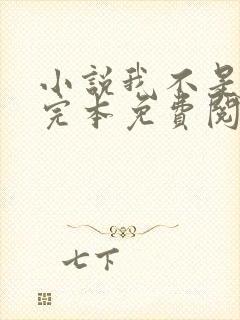 小説我不是
完本免費閱
七下